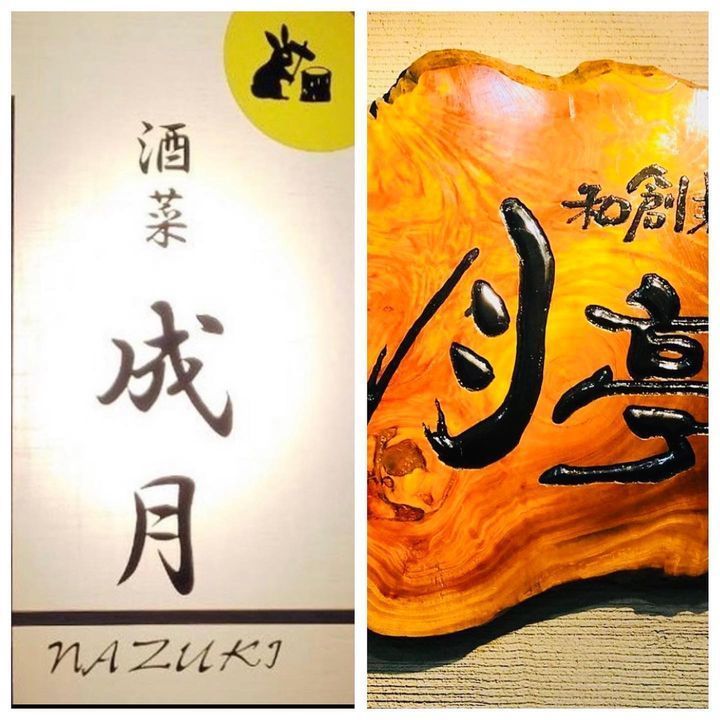 酒菜
成月
NAZUKI
和創
月亭